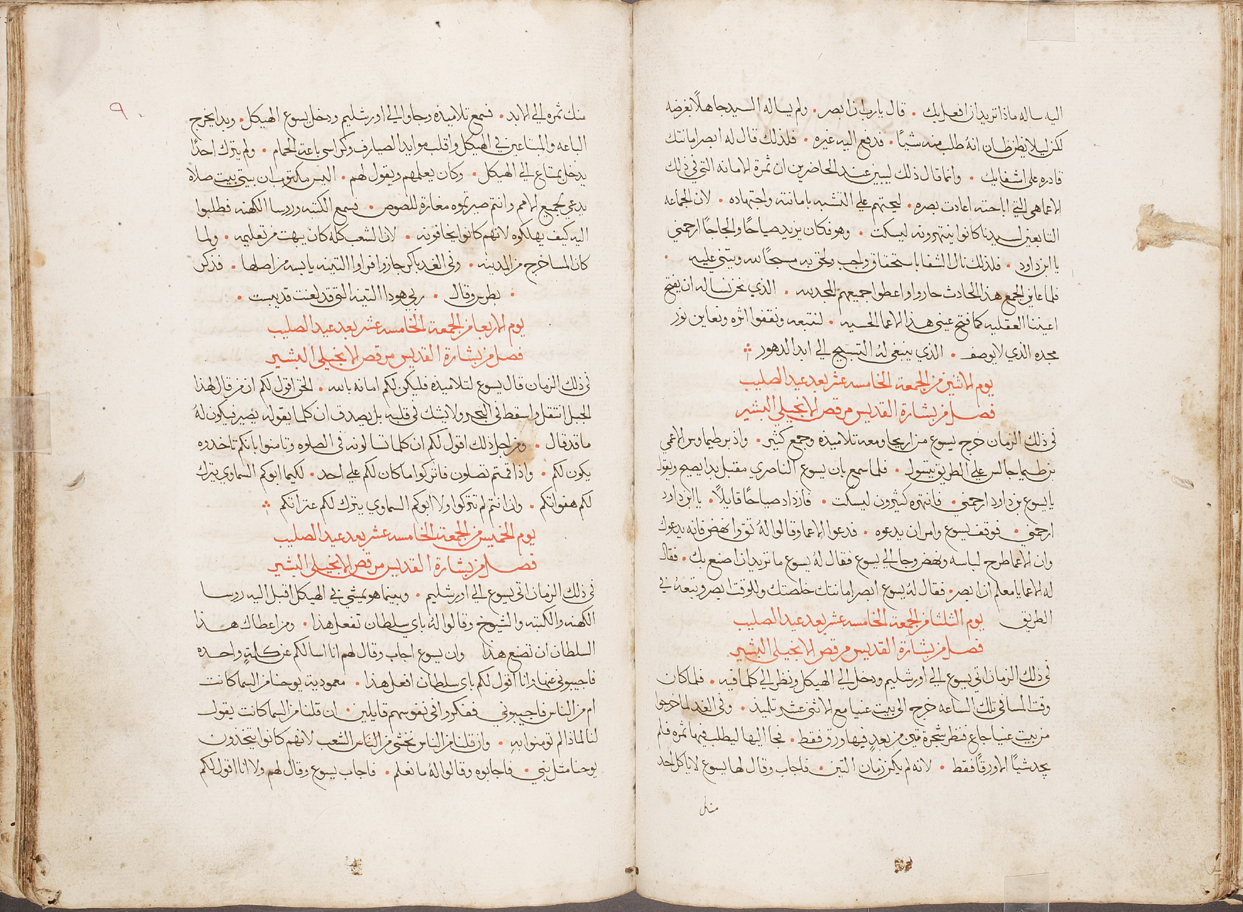 اليه ساله ماذا تريد ان افعل بك • قال يا رب ان ابصر • ولم يساله السيد جاهلاً بغرضه
لكن ليلا يظن ظان انه طلب منه شياً • فدفع اليه غيره • فلذلك قال له ابصر امانتك
قادره على اشفايك • وانما قال ذلك ليبين عند الحاضرين ان ثمرة الامانه التي في ذلك
الاعما هي التي اعادت بصره • ليحثهم على التشبه بامانته واجتهاده • لان الجماعه
التابعين لسيدنا كانوا ينتهرونه ليسكت • وهو فكان يزيد صياحاً والحاحاً ارحمني
يا ابن داود • فلذلك نال الشفا باستحقاق واجب ولحق به مسبحاً لله ويثني عليه •
فلما عاين الجمع هذا الحادث حاروا واعطوا جميعهم المجد لله • الذي نحن نساله ان يفتح
اعيننا العقليه كما فتح عيني هذا الاعما الحسيه • لنتبعه ونقفوا اثره ونعاين نور
مجده الذي لا يوصف • الذي ينبغي له التسبيح الى ابد الدهور
يوم الاثنين من الجمعة الخامسه عشر بعد عيد الصليب
فصل من بشارة القديس مرقص الانجيلي البشير
في ذلك الزمان خرج يسوع من اريحا ومعه تلاميذه وجمع كثير • واذ برطيماوس الاعمي
بن طيما جالس على الطريق يتسول • فلما سمع بان يسوع الناصري مقبل بدا يصيح ويقول
يا يسوع بن داود ارحمني • فانتهره كثيرون ليسكت • فازداد صياحاً قايلاً • يا ابن داود
ارحمني • فوقف يسوع وامر ان يدعوه • فدعوا الاعما وقالوا له ثق وانهض فانه يدعوك
وان الاعما طرح لباسه ونهض وجا الى يسوع فقال له يسوع ما تريد ان اصنع بك • فقال
له الاعما يا معلم ان ابصر • فقال له يسوع ابصر امانتك خلصتك وللوقت ابصر وتبعه في
الطريق يوم الثلثا من الجمعة الخامسه عشر بعد عيد الصليب
فصل من بشارة القديس مرقص الانجيلي البشير
في ذلك الزمان اتي يسوع الى اورشليم ودخل الى الهيكل ونظر الى كلما فيه • فلما كان
وقت المسا في تلك الساعه خرج الى بيت عنيا مع الاثني عشر تلميذ • وفي الغد لما خرجوا
من بيت عنيا جاع فنظر شجرة تين من بعدٍ فيها ورق فقط • فجا اليها ليطلب فيها ثمره فلم
يجد شياً الا ورقاً فقط • لانه لم يكن زمان التين • فاجاب وقال لها يسوع لا ياكل احد
منك
٩
منك ثمره الى الابد • فسمع تلاميذه وجاوا الى اورشليم ودخل يسوع الهيكل • وبدا يخرج
الباعه والمبتاعين في الهيكل واقلب موايد الصيارف وكراسي باعة الحمام • ولم يترك احداً
يدخل بمتاع الى الهيكل • وكان يعلمهم ويقول لهم • اليس مكتوب ان بيتي بيت صلاه
يدعي لجميع الامم وانتم صيرتموه مغارة للصوص • فسمع الكتبه وروسا الكهنه فطلبوا
اليه كيف يهلكوه لانهم كانوا يخافونه • لان الشعب كله كان يبهت من تعليمه • ولما
كان المسا خرج من المدينه • وفي الغد باكر جازوا فراوا التينه يابسه من اصلها • فذكر
بطرس وقال • ربي هوذا التينه التي قد لعنت قد يبست •
يوم الاربعا من الجمعة الخامسه عشر بعد عيد الصليب
فصل من بشارة القديس مرقص الانجيلي البشير
في ذلك الزمان قال يسوع لتلاميذه فليكن لكم امانه بالله • الحق اقول لكم ان من قال لهذا
الجبل انتقل واسقط في البحر ولا يشك في قلبه بل يصدق ان كلما يقوله يصير فيكون له
ما قد قال • ومن اجل ذلك اقول لكم ان كلما تسالونه في الصلوه وتامنوا بانكم تاخدوه
يكون لكم • واذا قمتم تصلون فاتركوا ما كان لكم على احد • لكيما ابوكم السماوي يترك
لكم هفواتكم • وان انتم لم تتركوا ولا ابوكم السماوي يترك لكم عثراتكم
يوم الخميس من الجمعة الخامسه عشر بعد عيد الصليب
فصل من بشارة القديس مرقص الانجيلي البشير
في ذلك الزمان اتي يسوع الى اورشليم • وبينما هو يمشي في الهيكل اقبل اليه روسا
الكهنه والكتبه والشيوخ وقالوا له باي سلطان تفعل هذا • ومن اعطاك هذا
السلطان ان تصنع هذا وان يسوع اجاب وقال لهم انا اسالكم عن كلمةٍ واحده
فاجيبوني عنها فانا اقول لكم باي سلطان افعل هذا • معمودية يوحنا من السما كانت
ام من الناس فاجيبوني ففكروا في نفوسهم قايلين • ان قلنا من السما كانت يقول
لنا لماذا لم تومنوا به • وان قلنا من الناس نخشي من الشعب لانهم كانوا يتخدون
يوحنا مثل نبي • فاجابوه وقالوا له ما نعلم • فاجاب يسوع وقال لهم ولا انا اقول لكم